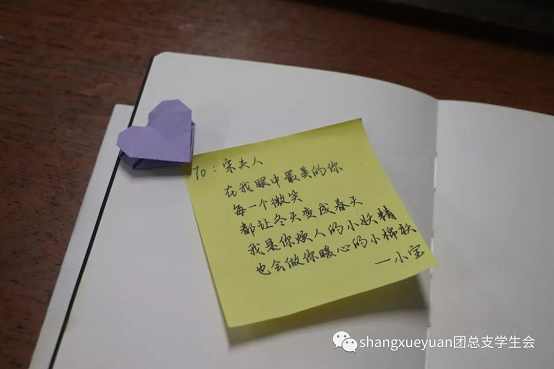 To：宋夫人
在我眼中最美的你
每一个微笑
都让冬天变成春天
我是你烦人的小妖精
也会做你暖心的小棉袄
—小宝
shangxueyuan团总支学生会